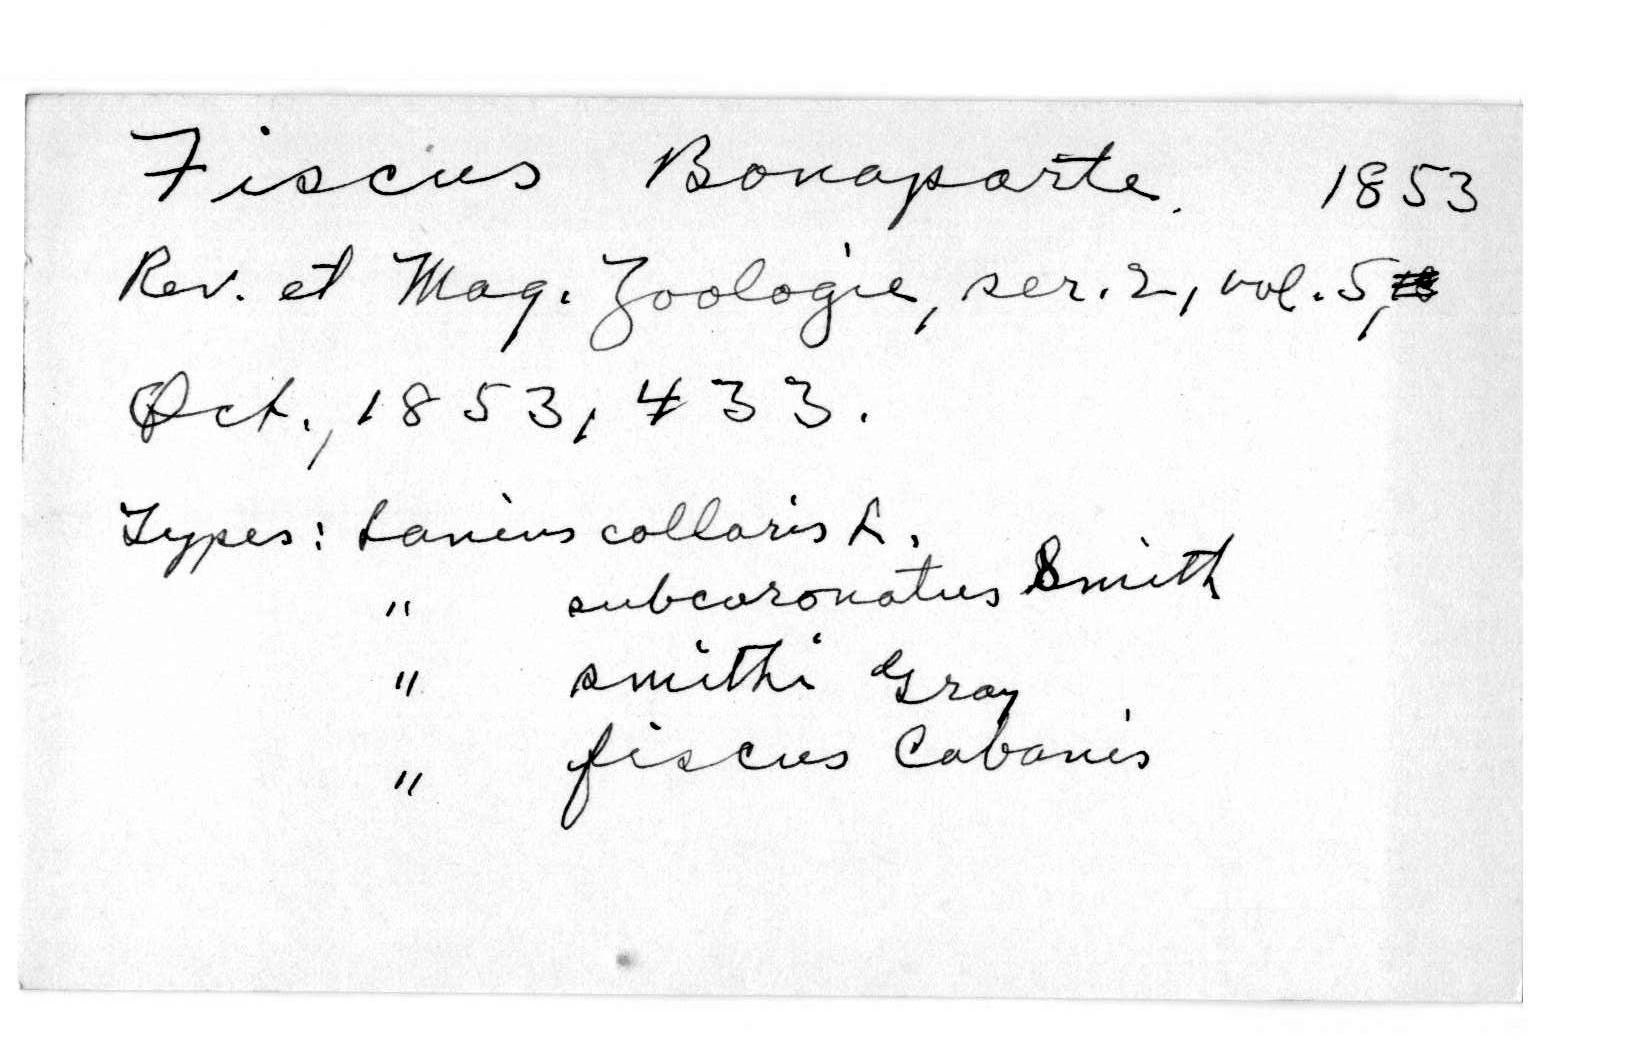 Fiscus Bonaparte. 1853
Rev. et Mag. Zoologie, ser. 2, vol. 5,
Oct., 1853, 433.
Types: Lanius collaris L.
" subcoronatus Smith
" smithi Gray
" fiscus Cabanis